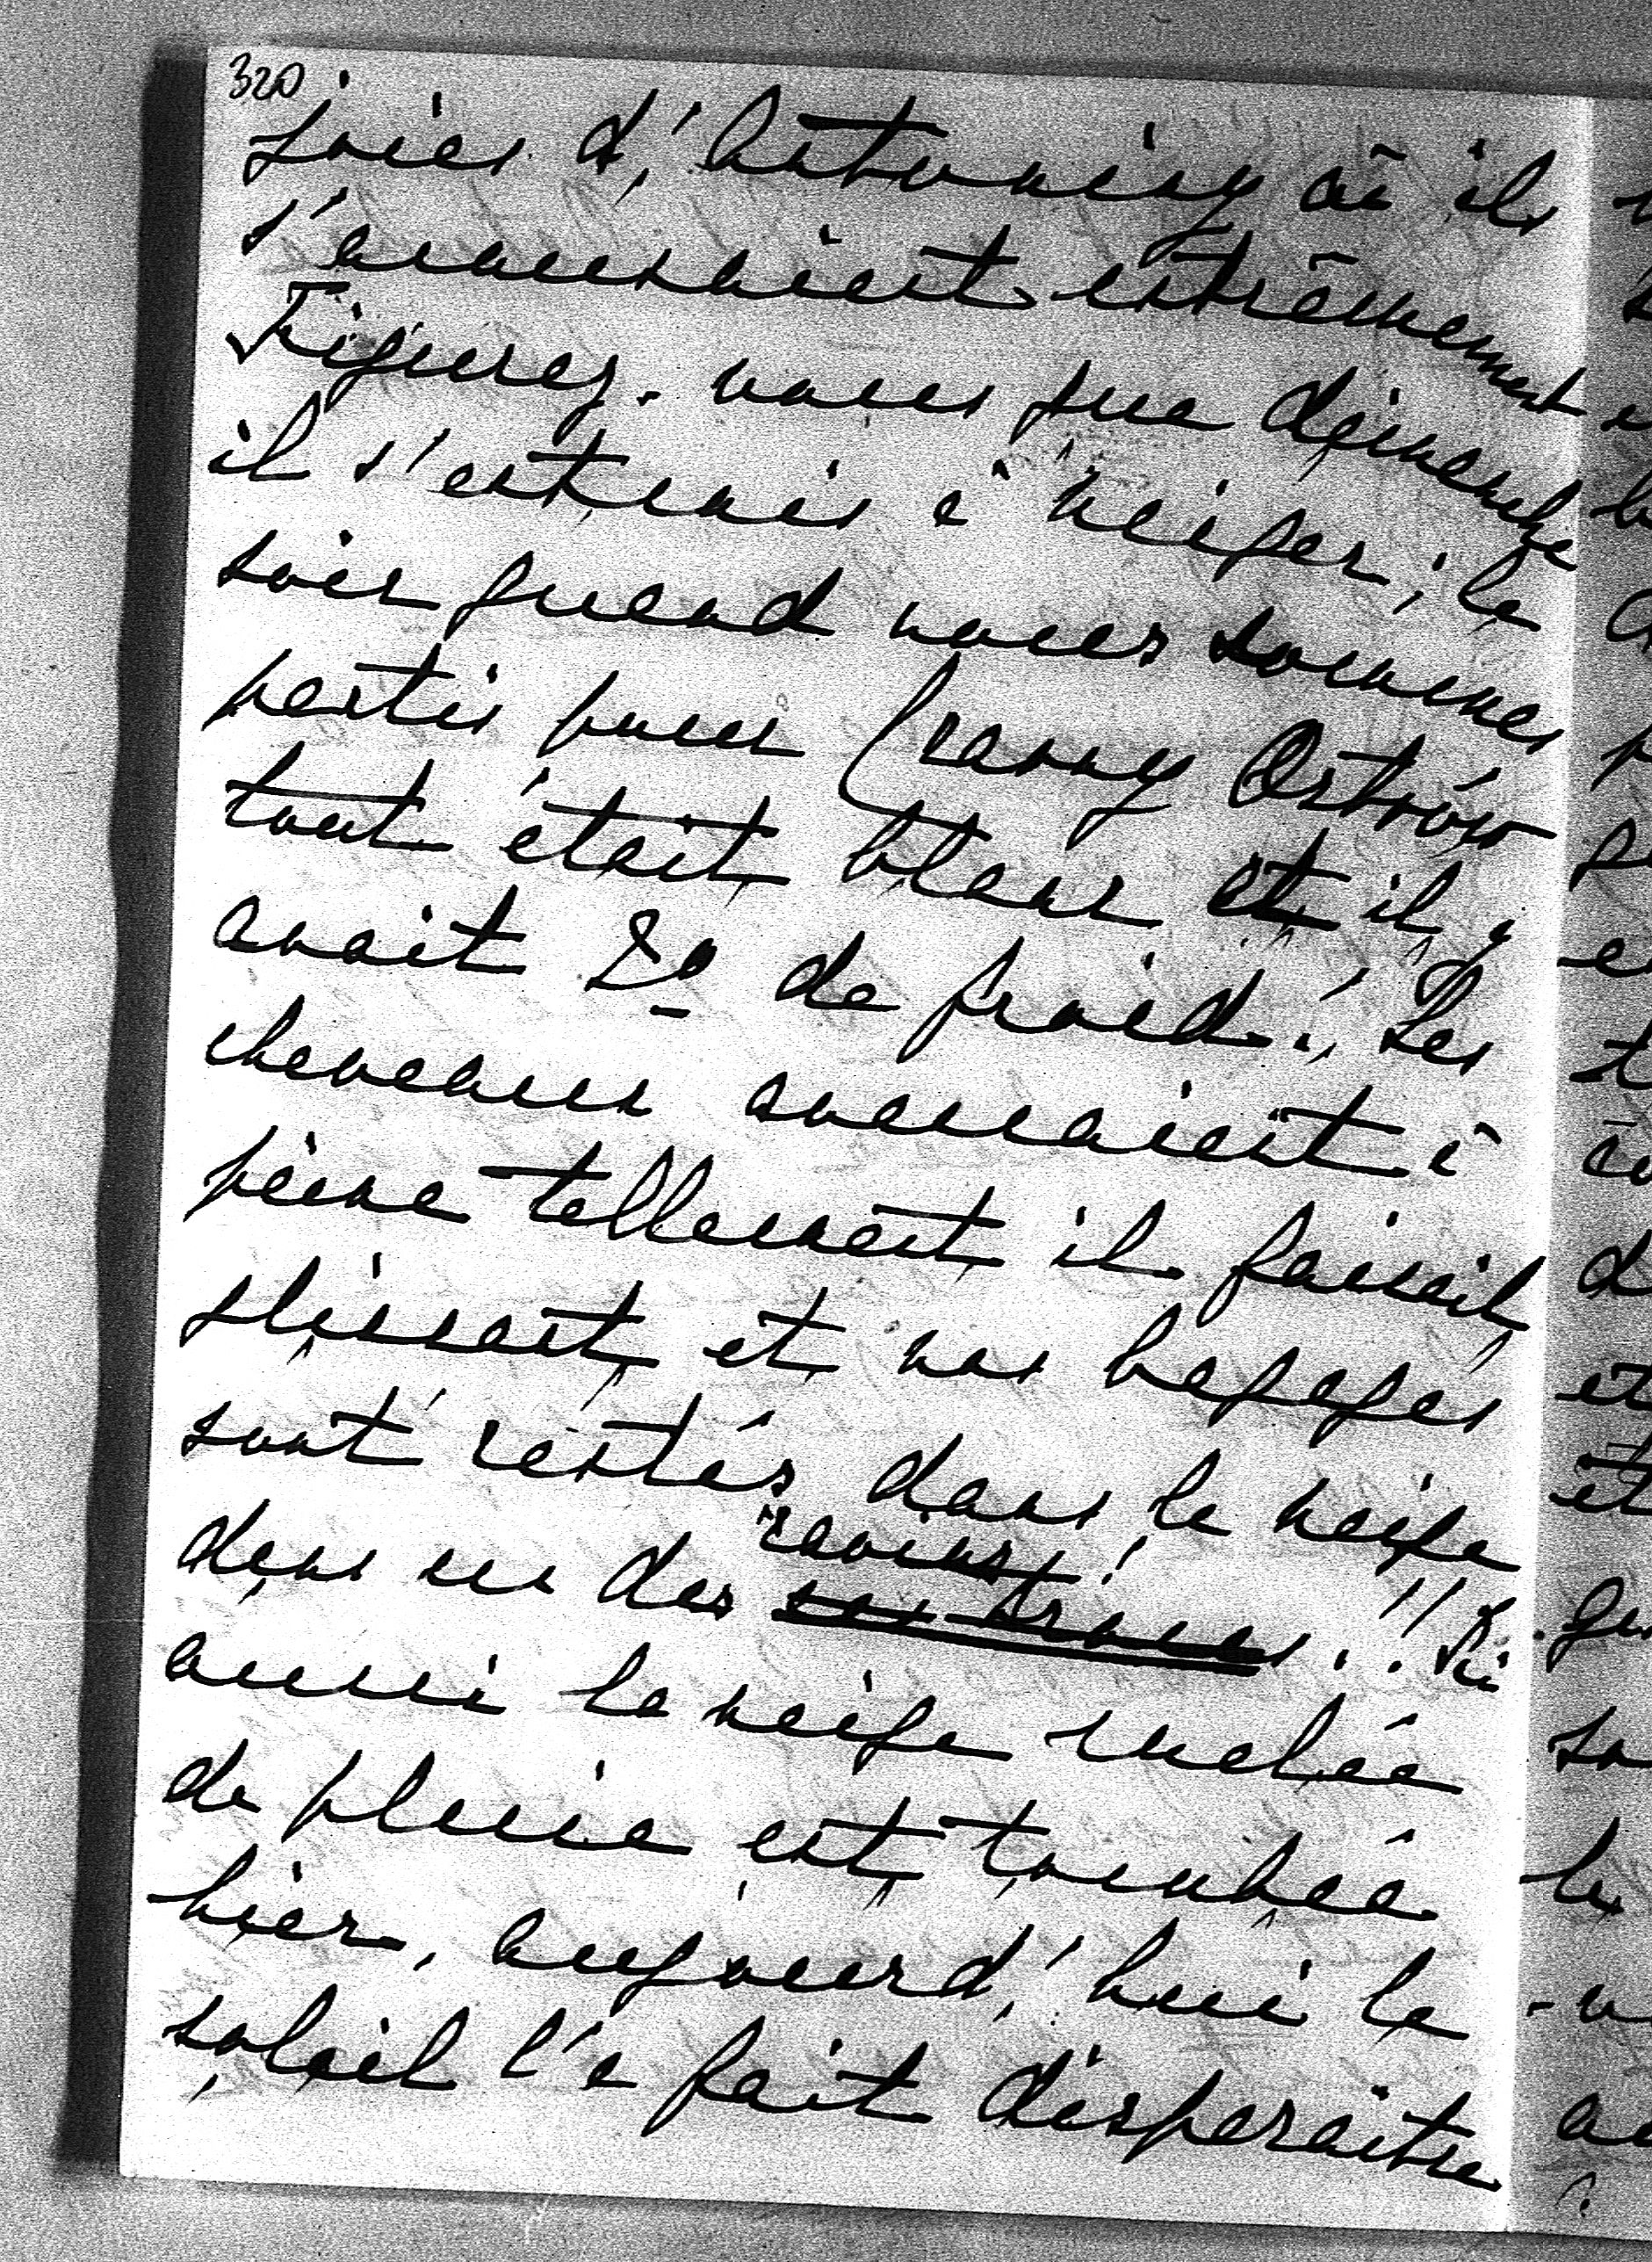 320
joies d'Antoniny où ils
s'amusaient extrêmement
Figurez-vous que dimanche
il s'est mis à neiger; le
soir quand nous sommes
partis pour Krasny Ostrów
tout était blanc et il y
avait 2° de froid! Les
chevaux avançaient à
peine tellement il faisait
glissant et nos bagages
sont restés dans la neige
dans un des ravins!
aussi la neige mêlée
de pluie est tombée
hier, aujourd'hui le
soleil l'a fait disparaître